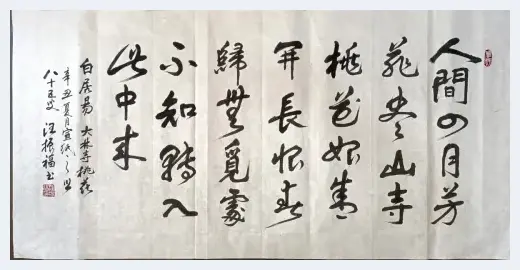 人間四月芳
菲尽山寺
桃花始盛
开長恨春
歸無覓處
不知轉入
此中来
白居易 大林寺桃花
辛丑夏月宣
八十五叟 汪振福书